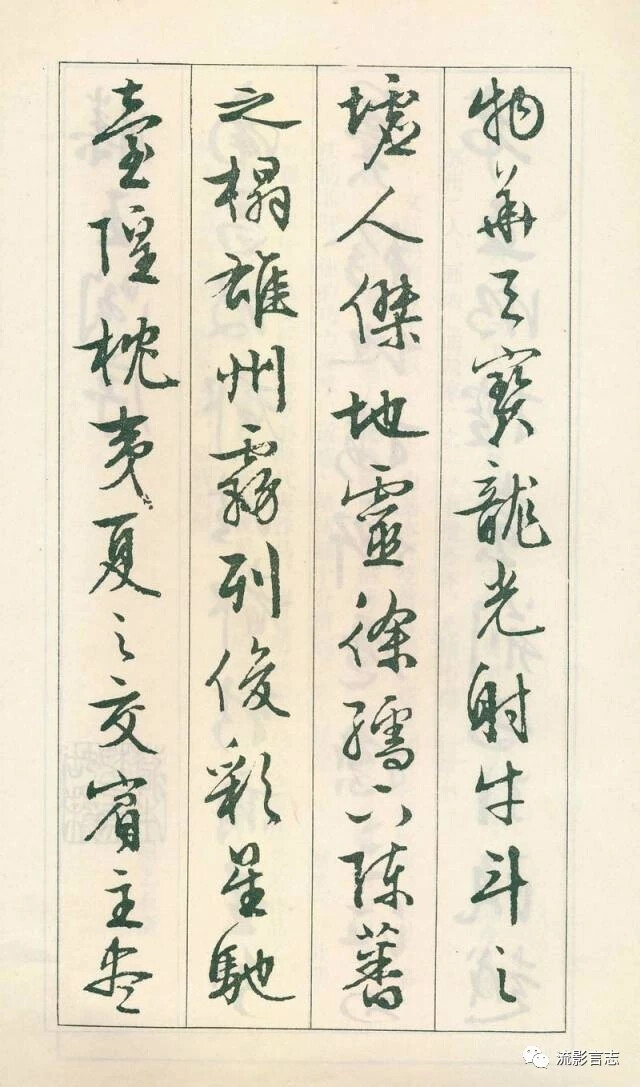 物華天寶龍光射牛斗之
墟人傑地靈徐孺下陳蕃
之榻雄州霧列俊彩星馳
臺隍枕夷夏之交賓主盡
流影言志